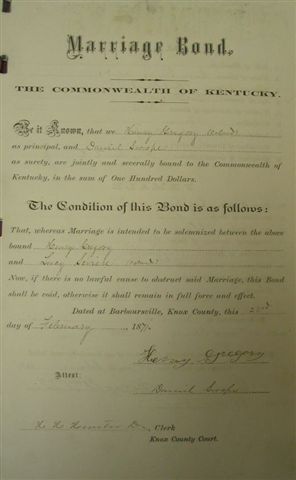 Marriage Bond.
THE COMMONWEALTH OF KENTUCKY.
Be it Known, that we Henry Gregory
as principal, and Daniel Swope
as surety, are jointly and severally bound to the Commonwealth of
Kentucky, in the sum of One Hundred Dollars.
The Condition of this Bond is as follows:
That, whereas Marriage is intended to be solemnized between the above
bound Henry Gregory
and Lucy
Now, if there is no lawful cause to obstruct said Marriage, this Bond
shall be void, otherwise it shall remain in full force and effect.
Dated at Barboursville, Knox County, this 22nd
day of February 187
Henry Gregory
Attest:
Daniel Swope
Clerk
Knox County Court.